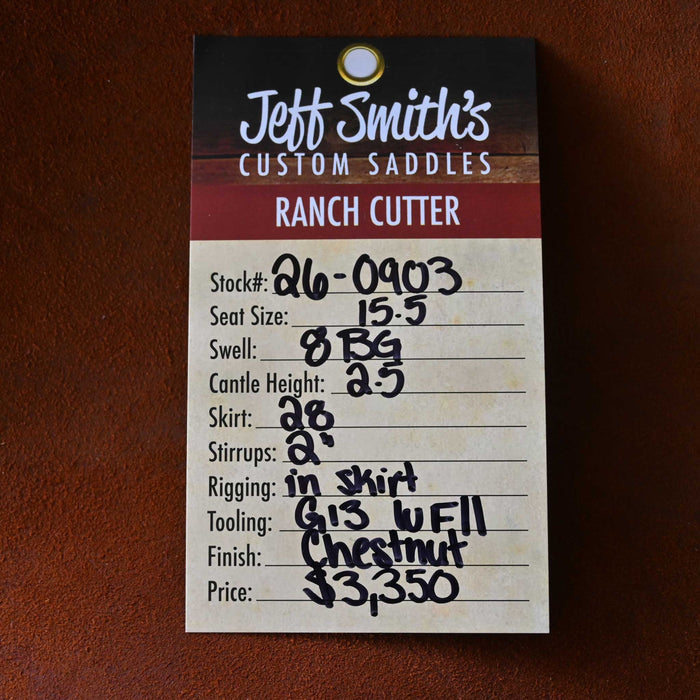 Jeff Smith's
CUSTOM SADDLES
RANCH CUTTER
Stock#: 26-0903
Seat Size: 15.5
Swell: 8 BG
Cantle Height: 2.5
Skirt: 28
Stirrups: 2"
Rigging: in skirt
Tooling: G13 W F11
Finish: Chestnut
Price: $3,350